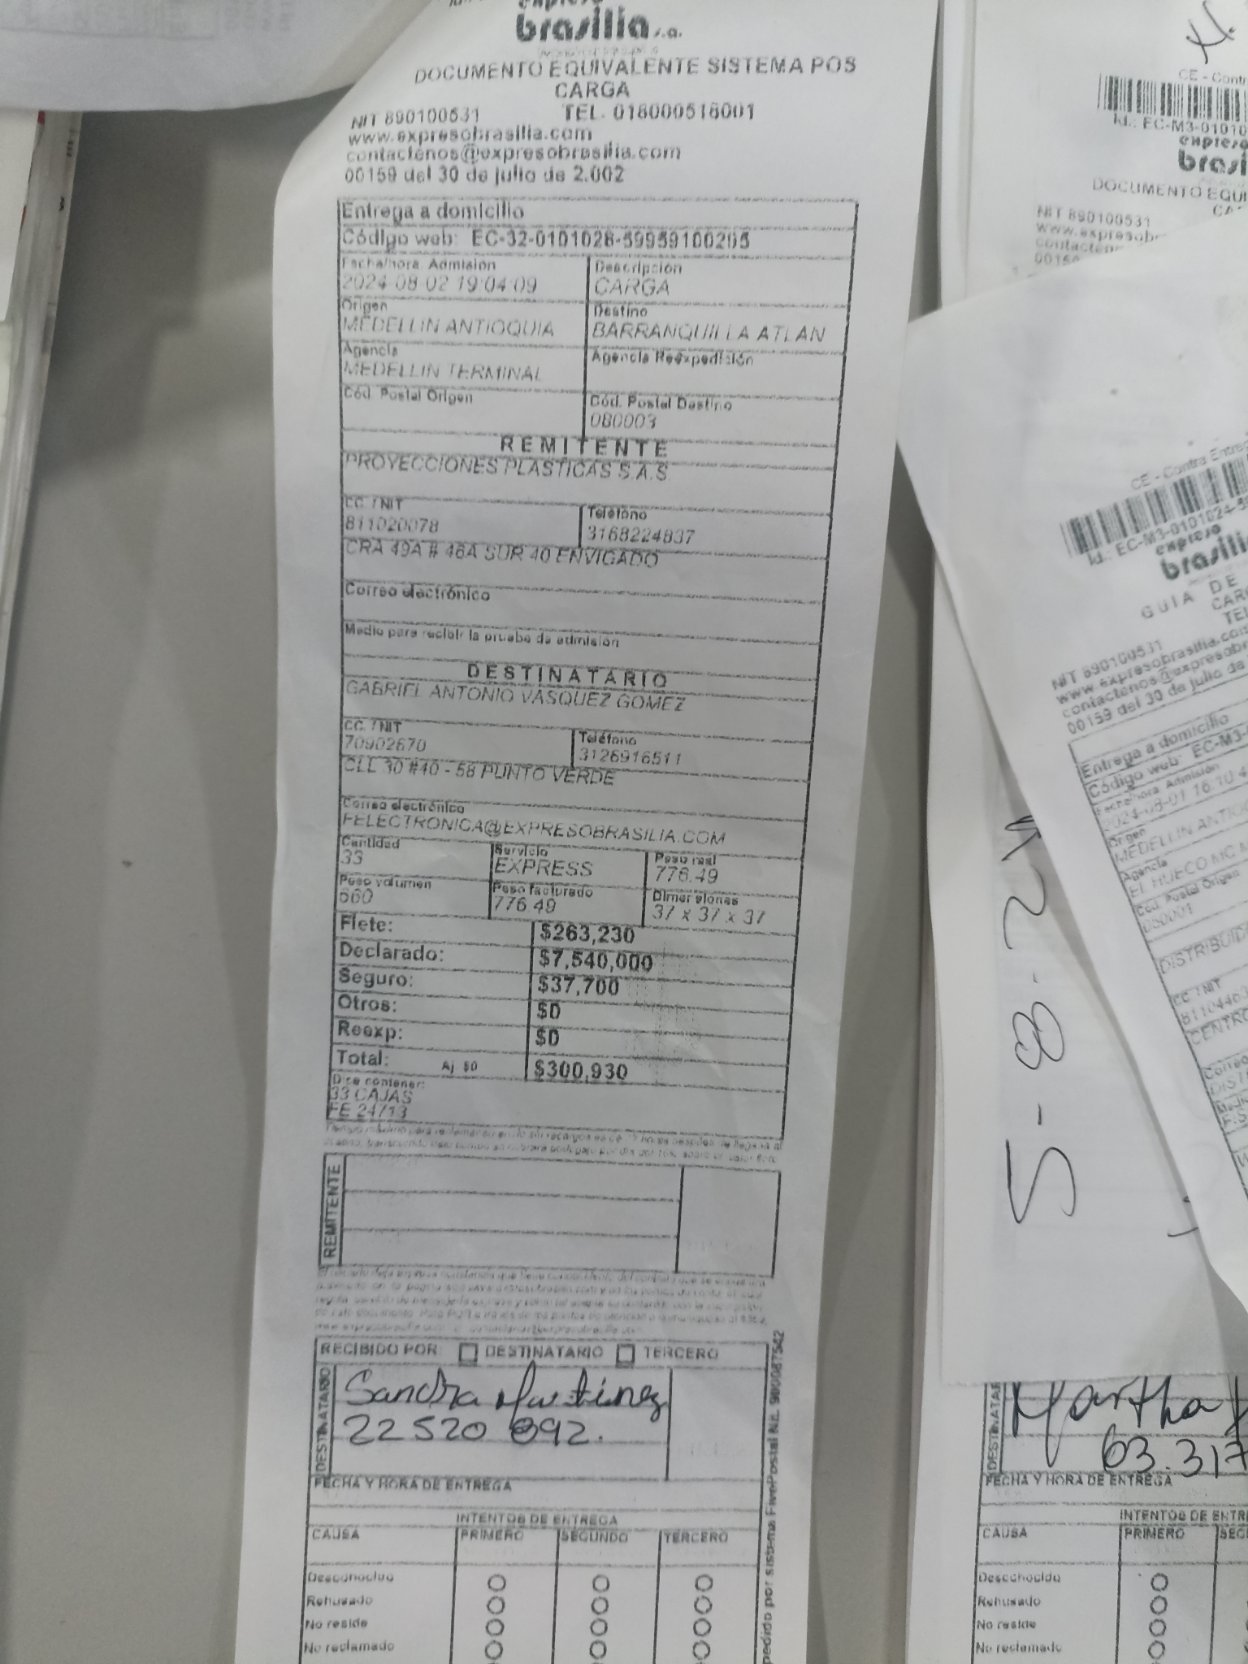 expreso
brasilia s.a.
DOCUMENTO EQUIVALENTE SISTEMA POS
CARGA
NIT 890100531 TEL. 018000518001
www.expresobrasilia.com
contactenos@expresobrasilia.com
00159 del 30 de julio de 2.002
Entrega a domicilio
Código web: EC-32-0101028-59959100205
Fecha/hora Admisión Descripción
2024-08-02 19:04:09 CARGA
Origen Destino
MEDELLIN ANTIOQUIA BARRANQUILLA ATLAN
Agencia Agencia Reexpedición
MEDELLIN TERMINAL
Cód. Postal Origen Cód. Postal Destino
080003
REMITENTE
PROYECCIONES PLASTICAS S.A.S
CC. / NIT Teléfono
811020078 3168224837
CRA 49A # 48A SUR 40 ENVIGADO
Correo electrónico
Medio para recibir la prueba de admisión
DESTINATARIO
GABRIEL ANTONIO VASQUEZ GOMEZ
CC. / NIT Teléfono
70902670 3126916511
CLL 30 #40 - 58 PUNTO VERDE
Correo electrónico
FELECTRONICA@EXPRESOBRASILIA.COM
Cantidad Servicio Peso real
33 EXPRESS 776.49
Peso volumen Peso facturado Dimensiones
660 776.49 37 x 37 x 37
Flete: $263,230
Declarado: $7,540,000
Seguro: $37,700
Otros: $0
Reexp: $0
Total: Aj. $0 $300,930
Dice contener:
33 CAJAS
FE 24713
REMITENTE
RECIBIDO POR: DESTINATARIO TERCERO
DESTINATARIO
Sandra Martinez
22520892.
FECHA Y HORA DE ENTREGA
INTENTOS DE ENTREGA
CAUSA PRIMERO SEGUNDO TERCERO
Desconocido
Rehusado
No reside
No reclamado
pedido por sistema FivePostal Nit. 900087542
CE - Contr
Id.: EC-M3-01010
expreso
brasi
DOCUMENTO EQUI
NIT 890100531
CE - Contra Entre
Id.: EC-M3-0101024-5
expreso
brasili
GUIA DE
CAR
TEL
NIT 890100531
www.expresobrasilia.com
contactenos@expresobr
00159 del 30 de julio de
Entrega a domicilio
Código web: EC-M3-
Fecha/hora Admisión
2024-08-01 16:10:4
Origen
MEDELLIN ANTIO
Agencia
EL HUECO MC M
Cód. Postal Origen
DISTRIBUID
CC. / NIT
CENTRO
Correo
5-8-24
DESTINATAR
Martha
63.317
FECHA Y HORA DE ENTREGA
INTENTOS DE ENTR
CAUSA PRIMERO SEG
Desconocido
Rehusado
No reside
No reclamado